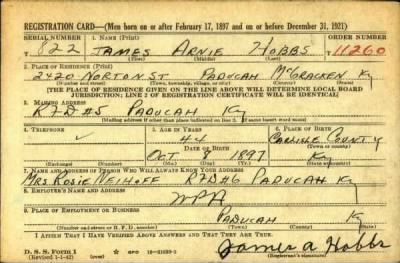 REGISTRATION CARD—(Men born on or after February 17, 1897 and on or before December 31, 1921)
SERIAL NUMBER 1. NAME (Print) ORDER NUMBER
822 JAMES ARNIE HOBBS 11260
(First) (Middle) (Last)
2. PLACE OF RESIDENCE (Print)
2420 NORTON ST PADUCAH McCRACKEN Ky
(Number and street) (Town, township, village, or city) (County) (State)
[THE PLACE OF RESIDENCE GIVEN ON THE LINE ABOVE WILL DETERMINE LOCAL BOARD
JURISDICTION; LINE 2 OF REGISTRATION CERTIFICATE WILL BE IDENTICAL]
3. MAILING ADDRESS
RFD #5 PADUCAH Ky
[Mailing address if other than place indicated on line 2. If same insert word same]
4. TELEPHONE 5. AGE IN YEARS 6. PLACE OF BIRTH
44
DATE OF BIRTH
COUNTY
OCT 8 1897 Ky
(Exchange) (Number) (Mo.) (Day) (Yr.) (State or country)
7. NAME AND ADDRESS OF PERSON WHO WILL ALWAYS KNOW YOUR ADDRESS
MRS ROSIE RFD #6 PADUCAH Ky
8. EMPLOYER'S NAME AND ADDRESS
WPA
9. PLACE OF EMPLOYMENT OR BUSINESS
PADUCAH Ky
(Number and street or R. F. D. number) (Town) (County) (State)
I AFFIRM THAT I HAVE VERIFIED ABOVE ANSWERS AND THAT THEY ARE TRUE.
D. S. S. Form 1
(Revised 1-1-42) (over) GPO
James A Hobbs
(Registrant's signature)